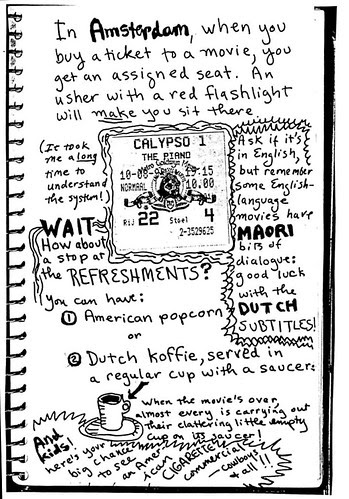 In Amsterdam, when you
buy a ticket to a movie, you
get an assigned seat. An
usher with a red flashlight
will make you sit there
(It took
me a long
time to
understand
the system!)
CALYPSO 1
THE PIANO
10-08- 19:15
NORMAAL 10.00
Rij 22 Stoel 4
2-3529625
Ask if it's
in English,
but remember
some English-
language
movies have
MAORI
bits of
dialogue:
good luck
with the
DUTCH
SUBTITLES!
WAIT
How about
a stop at
the REFRESHMENTS?
You can have:
1 American popcorn
or
2 Dutch koffie, served in
a regular cup with a saucer:
When the movie's over,
almost every is carrying out
their clattering little empty
cup on its saucer!
And
kids!
here's your
big chance
to see
an Amer-
ican
CIGARETTE
commercial—
cowboys
& all!!!